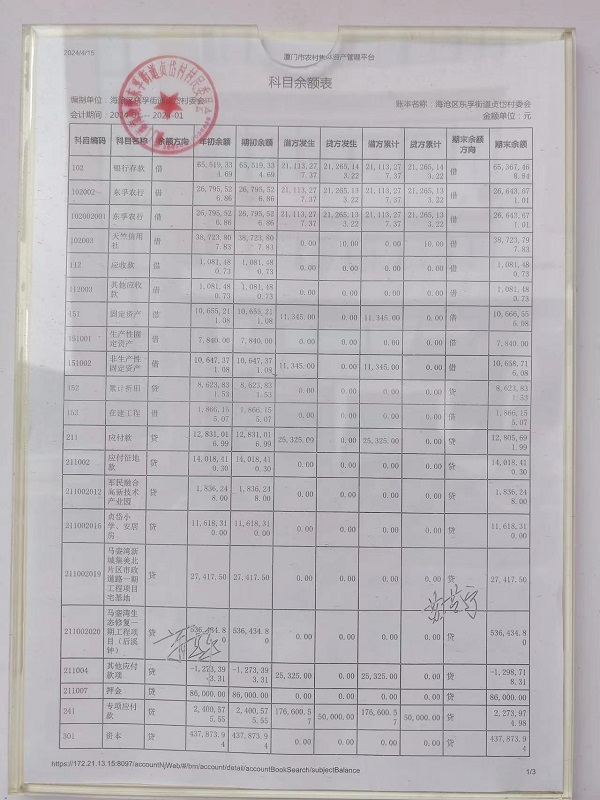 2024/4/15 厦门市农村集体资产管理平台
科目余额表
编制单位：海沧区东孚街道贞岱村委会 账本名称：海沧区东孚街道贞岱村委会
会计期间：2024-01 — 2024-01 金额单位：元
科目编码 科目名称 余额方向 年初余额 期初余额 借方发生 贷方发生 借方累计 贷方累计 期末余额方向 期末余额
102 银行存款 借 65,519,334.69 65,519,334.69 21,113,277.37 21,265,143.22 21,113,277.37 21,265,143.22 借 65,367,468.84
102002 东孚农行 借 26,795,526.86 26,795,526.86 21,113,277.37 21,265,133.22 21,113,277.37 21,265,133.22 借 26,643,671.01
102002001 东孚农行 借 26,795,526.86 26,795,526.86 21,113,277.37 21,265,133.22 21,113,277.37 21,265,133.22 借 26,643,671.01
102003 天竺信用社 借 38,723,807.83 38,723,807.83 0.00 10.00 0.00 10.00 借 38,723,797.83
112 应收款 借 1,081,480.73 1,081,480.73 0.00 0.00 0.00 0.00 借 1,081,480.73
112003 其他应收款 借 1,081,480.73 1,081,480.73 0.00 0.00 0.00 0.00 借 1,081,480.73
151 固定资产 借 10,655,211.08 10,655,211.08 11,345.00 0.00 11,345.00 0.00 借 10,666,556.08
151001 生产性固定资产 借 7,840.00 7,840.00 0.00 0.00 0.00 0.00 借 7,840.00
151002 非生产性固定资产 借 10,647,371.08 10,647,371.08 11,345.00 0.00 11,345.00 0.00 借 10,658,716.08
152 累计折旧 贷 8,623,831.53 8,623,831.53 0.00 0.00 0.00 0.00 贷 8,623,831.53
153 在建工程 借 1,866,155.07 1,866,155.07 0.00 0.00 0.00 0.00 借 1,866,155.07
211 应付款 贷 12,831,016.99 12,831,016.99 25,325.00 0.00 25,325.00 0.00 贷 12,805,691.99
211002 应付征地款 贷 14,018,410.30 14,018,410.30 0.00 0.00 0.00 0.00 贷 14,018,410.30
211002012 军民融合高新技术产业园 贷 1,836,248.00 1,836,248.00 0.00 0.00 0.00 0.00 贷 1,836,248.00
211002016 贞岱小学、安居房 贷 11,618,310.00 11,618,310.00 0.00 0.00 0.00 0.00 贷 11,618,310.00
211002019 马銮湾新城集美北片区市政道路一期工程项目宅基地 贷 27,417.50 27,417.50 0.00 0.00 0.00 0.00 贷 27,417.50
211002020 马銮湾生态修复一期工程项目（后溪钟） 贷 536,434.80 536,434.80 0.00 0.00 0.00 0.00 贷 536,434.80
211004 其他应付款项 贷 -1,273,393.31 -1,273,393.31 25,325.00 0.00 25,325.00 0.00 贷 -1,298,718.31
211007 押金 贷 86,000.00 86,000.00 0.00 0.00 0.00 0.00 贷 86,000.00
241 专项应付款 贷 2,400,575.55 2,400,575.55 176,600.57 50,000.00 176,600.57 50,000.00 贷 2,273,974.98
301 资本 贷 437,873.94 437,873.94 0.00 0.00 0.00 0.00 贷 437,873.94
https://172.21.13.15:8097/accountNjWeb/#/bm/account/detail/accountBookSearch/subjectBalance 1/3